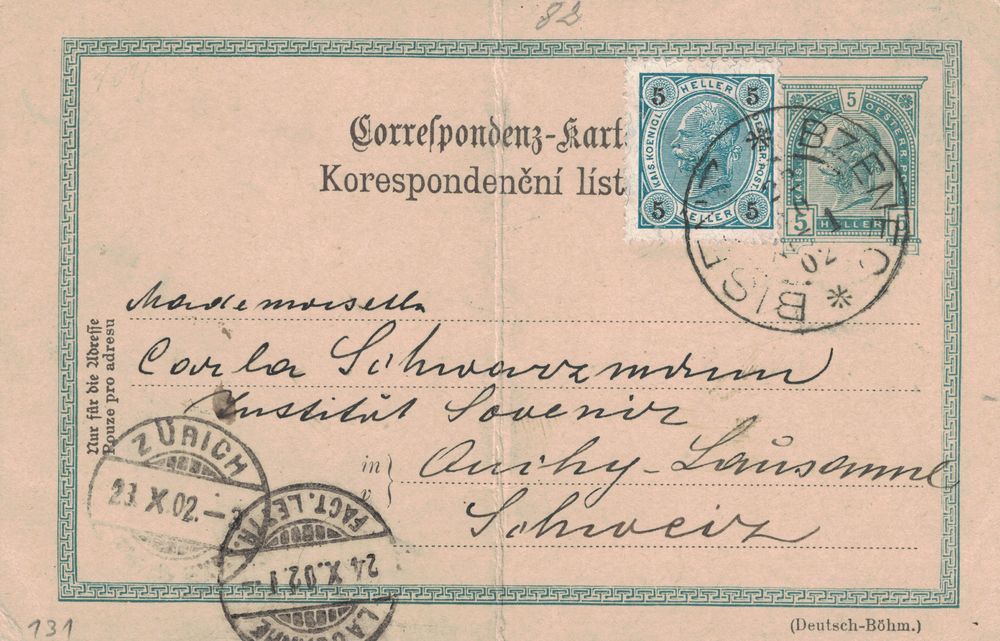 82
Correſpondenz-Kart
Korespondenční líst
5 HELLER 5
KAIS. KOENIGL.
OESTERR. POST.
5 HELLER 5
5
OESTERR.
5 HELLER
BZENEC
* BISENZ *
02
Mademoiselle
Carla Schwarzmann
Institut Souvenir
in } Ouchy-Lausanne
v
Schweiz
Nur für die Adreſſe
Pouze pro adresu
ZÜRICH
23.X.02.–3
FACT. LETTR.
24.X.02.1–
LAUSANNE
131
(Deutsch-Böhm.)